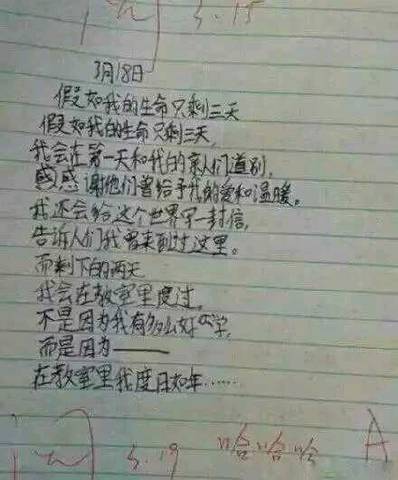 3.15
3月18日
假如我的生命只剩三天
假如我的生命只剩三天,
我会在第一天和我的亲人们道别,
感感谢他们曾给予我的爱和温暖。
我还会给这个世界写一封信,
告诉人们我曾来到过这里。
而剩下的两天
我会在教室里度过。
不是因为我有多么好学,
而是因为——
在教室里我度日如年……
3.19 哈哈哈 A